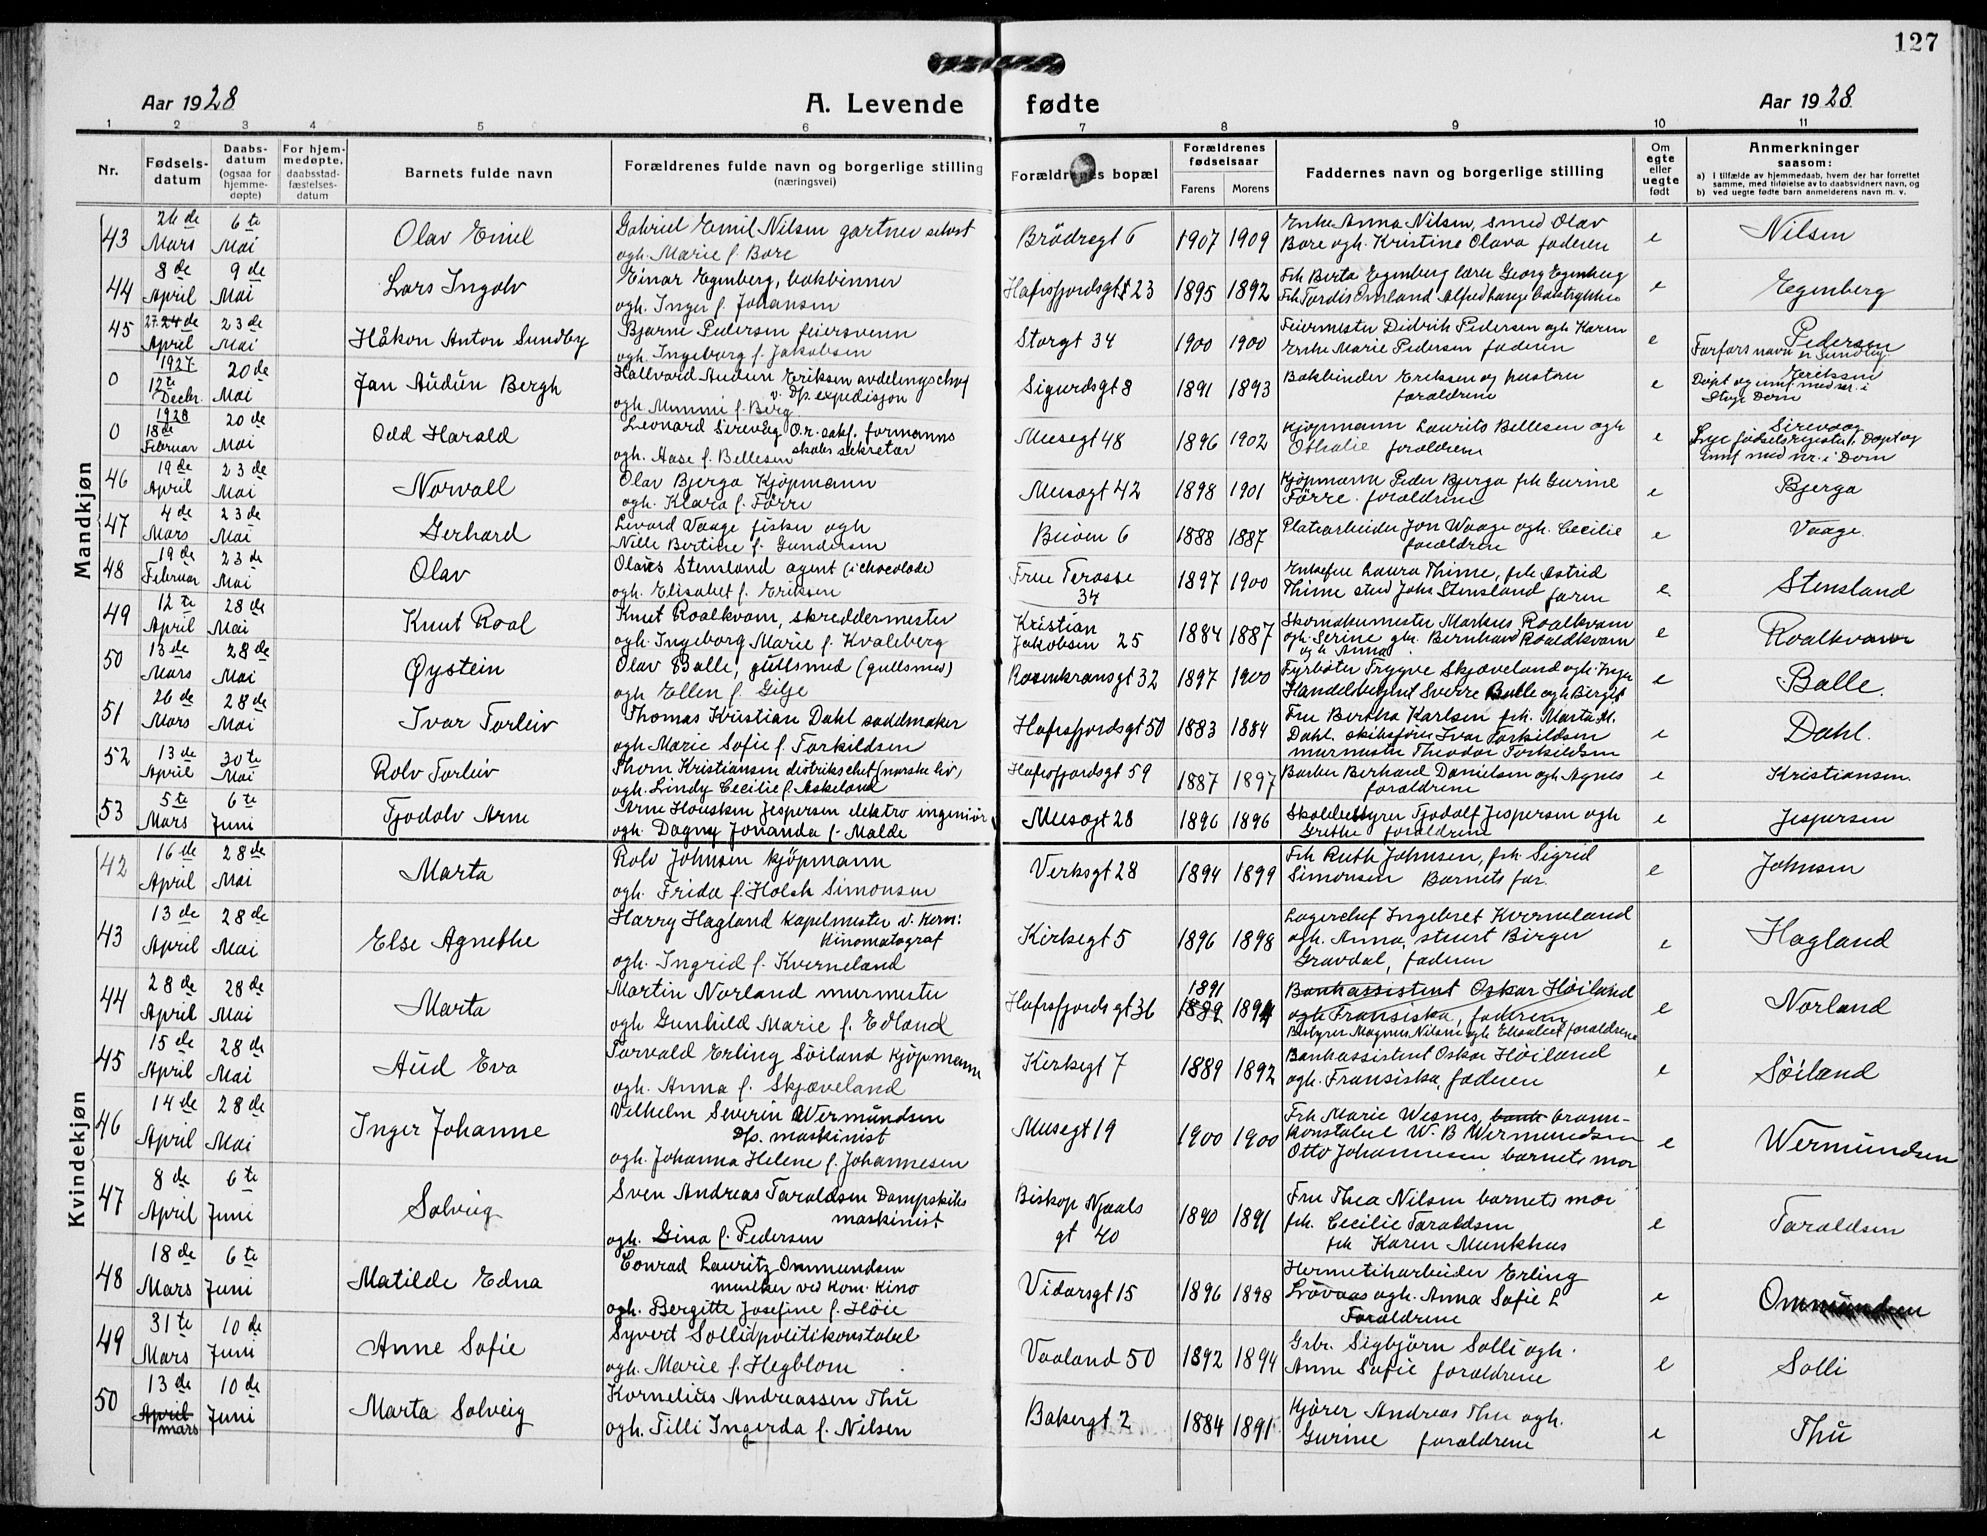 127
Aar 1928
A. Levende fødte
Aar 1928
1 2 3 4 5 6 7 8 9 10 11
Nr.
Fødsels-datum
Daabs-datum (ogsaa for hjemme-døpte)
For hjem-medøpte, daabsstad-fæstelses-datum
Barnets fulde navn
Forældrenes fulde navn og borgerlige stilling (næringsvei)
Forældrenes bopæl
Forældrenes fødselsaar
Farens Morens
Faddernes navn og borgerlige stilling
Om egte eller uegte født
Anmerkninger saasom:
a) I tilfælde av hjemmedaab, hvem der har forrettet samme, med tilføielse av to daabsvidners navn, og
b) ved uegte fødte barn anmelderens navn m. v.
Mandkjøn
43 26de Mars 6te Mai Olav Emil Gabriel Emil Nilsen gartner selvst
ogh. Marie f. Bore Brödregt 6 1907 1909 Enke Anna Nilsen, smed Olav
Bore ogh. Kristine Olava faderen e Nilsen
44 8de April 9de Mai Lars Ingolv Einar Egenberg, bokbinner
ogh. Inger f. Johansen Hafrsfjordsgt 23 1895 1892 Frk Berta Egenberg lærer Georg Egenberg
e Egenberg
45 27. 24de April 23de Mai Håkon Anton Sundby Bjarne Pedersen feiersvenn
ogh. Ingeborg f. Jakobsen Storgt 34 1900 1900 Feiermester Didrik Pedersen ogh Karen
Enke Marie Pedersen faderen e Pedersen
Farfars navn er Sundby
0 1927 12te Decbr. 20de Mai Jan Audun Bergh Hallvard Audun Eriksen avdelingschef
v. D/s. expedisjon
ogh. Mimmi f. Berg Sigurdsgt 8 1891 1893 Bokbinder Eriksen og hustru
forældrene e Eriksen
Døpt og innf med nr. i
Stvgr Dom
0 1928 18de Februar 20de Mai Odd Harald Leonard Sirevåg O.r. sakf. formanns
skaps sekretær
ogh. Aase f. Bellesen Musegt 48 1896 1902 Kjöpmann Laurits Bellesen ogh
Othalie forældrene e Sirevaag
fødselsregister. Døpt og
innf med nr. i Dom
46 19de April 23de Mai Norvall Olav Bjerga Kjöpmann
ogh. Klara f. Förre Musegt 42 1898 1901 Kjöpmann Peder Bjerga frk Gurine
Förre. forældrene e Bjerga
47 4de Mars 23de Mai Gerhard Sivard Vaage fisker ogh
Nille Bertine f. Gundersen Buöen 6 1888 1887 Platearbeider Jon Waage ogh. Cecilie
forældrene e Vaage.
48 19de Februar 23de Mai Olav Olaves Stensland agent (i chocolade)
ogh. Elisabet f. Eriksen Frue Terasse
34 1897 1900 Enkefru Laura Thime, frk Astrid
Thime stud John Stensland faren e Stensland
49 12te April 28de Mai Knut Roal Knut Roalkvam, skreddermester
ogh. Ingeborg Marie f. Kvaleberg Kristian
Jakobsen 25 1884 1887 Skomakermester Markus Roalkvam
ogh. Serine gbr. Bernhard Roaldkvam
ogh Anna e Roalkvam
50 13de Mars 28de Mai Øystein Olav Balle, gullsmed (gullsmed)
ogh Ellen f. Gilje Rosenkransgt 32 1897 1900 Fyrböter Trygve Skjæveland ogh. Inger
Handelsbetjent Sverre Balle ogh Bergit e Balle.
51 26de Mars 28de Mai Ivar Torleiv Thomas Kristian Dahl sadelmaker
ogh. Marie Sofie f. Torkildsen Hafrsfjordsgt 50 1883 1884 Fru Bertha Karlsen frk. Marta M.
Dahl. skibsförer Ivar Torkildsen
murmester Theodor Torkildsen e Dahl.
52 13de April 30te Mai Rolv Torleiv Thom Kristiansen distrikschef (norske liv)
ogh. Lindy Cecilie f. Askeland Hafrsfjordsgt 59 1887 1897 Barber Berhard Danielsen ogh Agnes
forældrene e Kristiansen.
53 5te Mars 6te Juni Tjodolv Arne Arne Housken Jespersen elektro ingeniör
ogh. Dagny Jonanda f. Malde Musegt 28 1896 1896 Skolebestyrer Tjodolf Jespersen ogh
Grethe forældrene e Jespersen
Kvindekjøn
42 16de April 28de Mai Marta Rolv Johnsen kjöpmann
ogh. Frida f. Holck Simonsen Verksgt 28 1894 1899 Frk Ruth Johnsen, frk. Sigrid
Simonsen Barnets far. e Johnsen
43 13de April 28de Mai Else Agnethe Harry Hagland Kapelmester v. Kom:
Kinomatograf
ogh. Ingrid f. Kverneland Kirkegt 5 1896 1898 Lagerchef Ingebret Kverneland
ogh. Anna, stuert Birger
Gravdal, faderen e Hagland
44 28de April 28de Mai Marta Martin Norland murmester
ogh Gunhild Marie f. Edland Hafrsfjordsgt 36 1891 1889 1894 Bankassistent Oskar Höiland
ogh Fransiska, faderen
Bestyrer Magnus Nilsen ogh Elisabet forældrene e Norland
45 15de April 28de Mai Aud Eva Torvald Erling Söiland Kjöpmann
ogh. Anna f. Skjæveland Kirkegt 7 1889 1892 Bankassistent Oskar Höiland
ogh. Fransiska, faderen e Söiland
46 14de April 28de Mai Inger Johanne Vilhelm Severin Wermundsen
D/s. maskinist
ogh. Johanna Helene f. Johannesen Musegt 19 1900 1900 Frk Marie Wesnes, bank brann-
konstabel W. B Wermundsen
Otto Johannesen barnets mor e Wermundsen
47 8de April 6te Juni Solveig Sven Andreas Taraldsen Dampskibs
maskinist
ogh. Gina f. Pedersen Biskop Njaals
gt 40 1890 1891 Fru Thea Nilsen barnets mor
frk. Cecilie Taraldsen
frk Karen Munkhus e Taraldsen
48 18de Mars 6te Juni Matilde Edna Conrad Lauritz Ommundsen
musiker ved Kom. Kino
ogh. Bergitte Josefine f. Höie Vidarsgt 15 1896 1898 Hermetikarbeider Erling
Lövaas ogh. Anna Sofie L
Forældrene e Ommundsen
49 31te Mars 10de Juni Anne Sofie Syvert Sollid politikonstabel
ogh. Marie f. Hegblom Vaaland 50 1892 1894 Grbr. Sigbjörn Solli ogh.
Anne Sofie forældrene e Solli
50 13de April mars 10de Juni Marta Solveig Kornelius Andreassen Thu
ogh. Tilli Ingerda f. Nilsen Bakergt 2 1884 1891 Kjörer Andreas Thu ogh.
Gurine forældrene e Thu